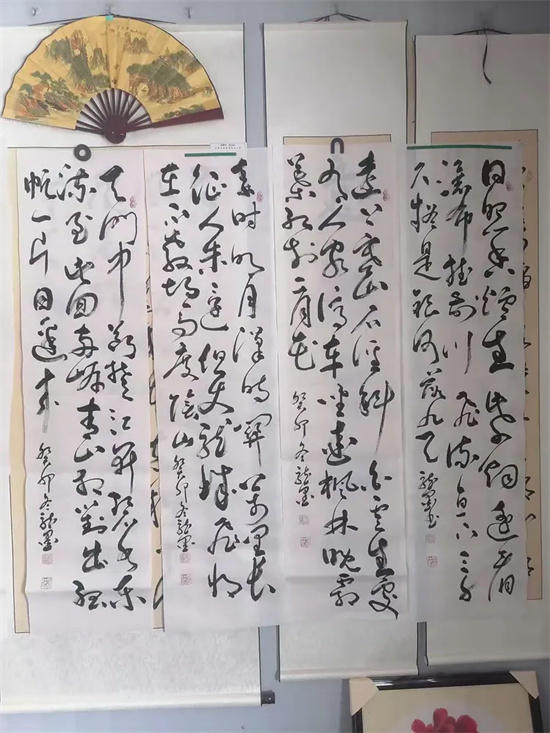 日照香炉生紫烟遥看
瀑布挂前川飞流直下三千
尺疑是银河落九天 龙墨书
远上寒山石径斜白云生处
有人家停车坐爱枫林晚霜
叶红于二月花 癸卯冬龙墨
秦时明月汉时关万里长
征人未还但使龙城飞将
在不教胡马度阴山 癸卯冬龙墨
天门中断楚江开碧水东
流至此回两岸青山相对出孤
帆一片日边来 癸卯冬龙墨